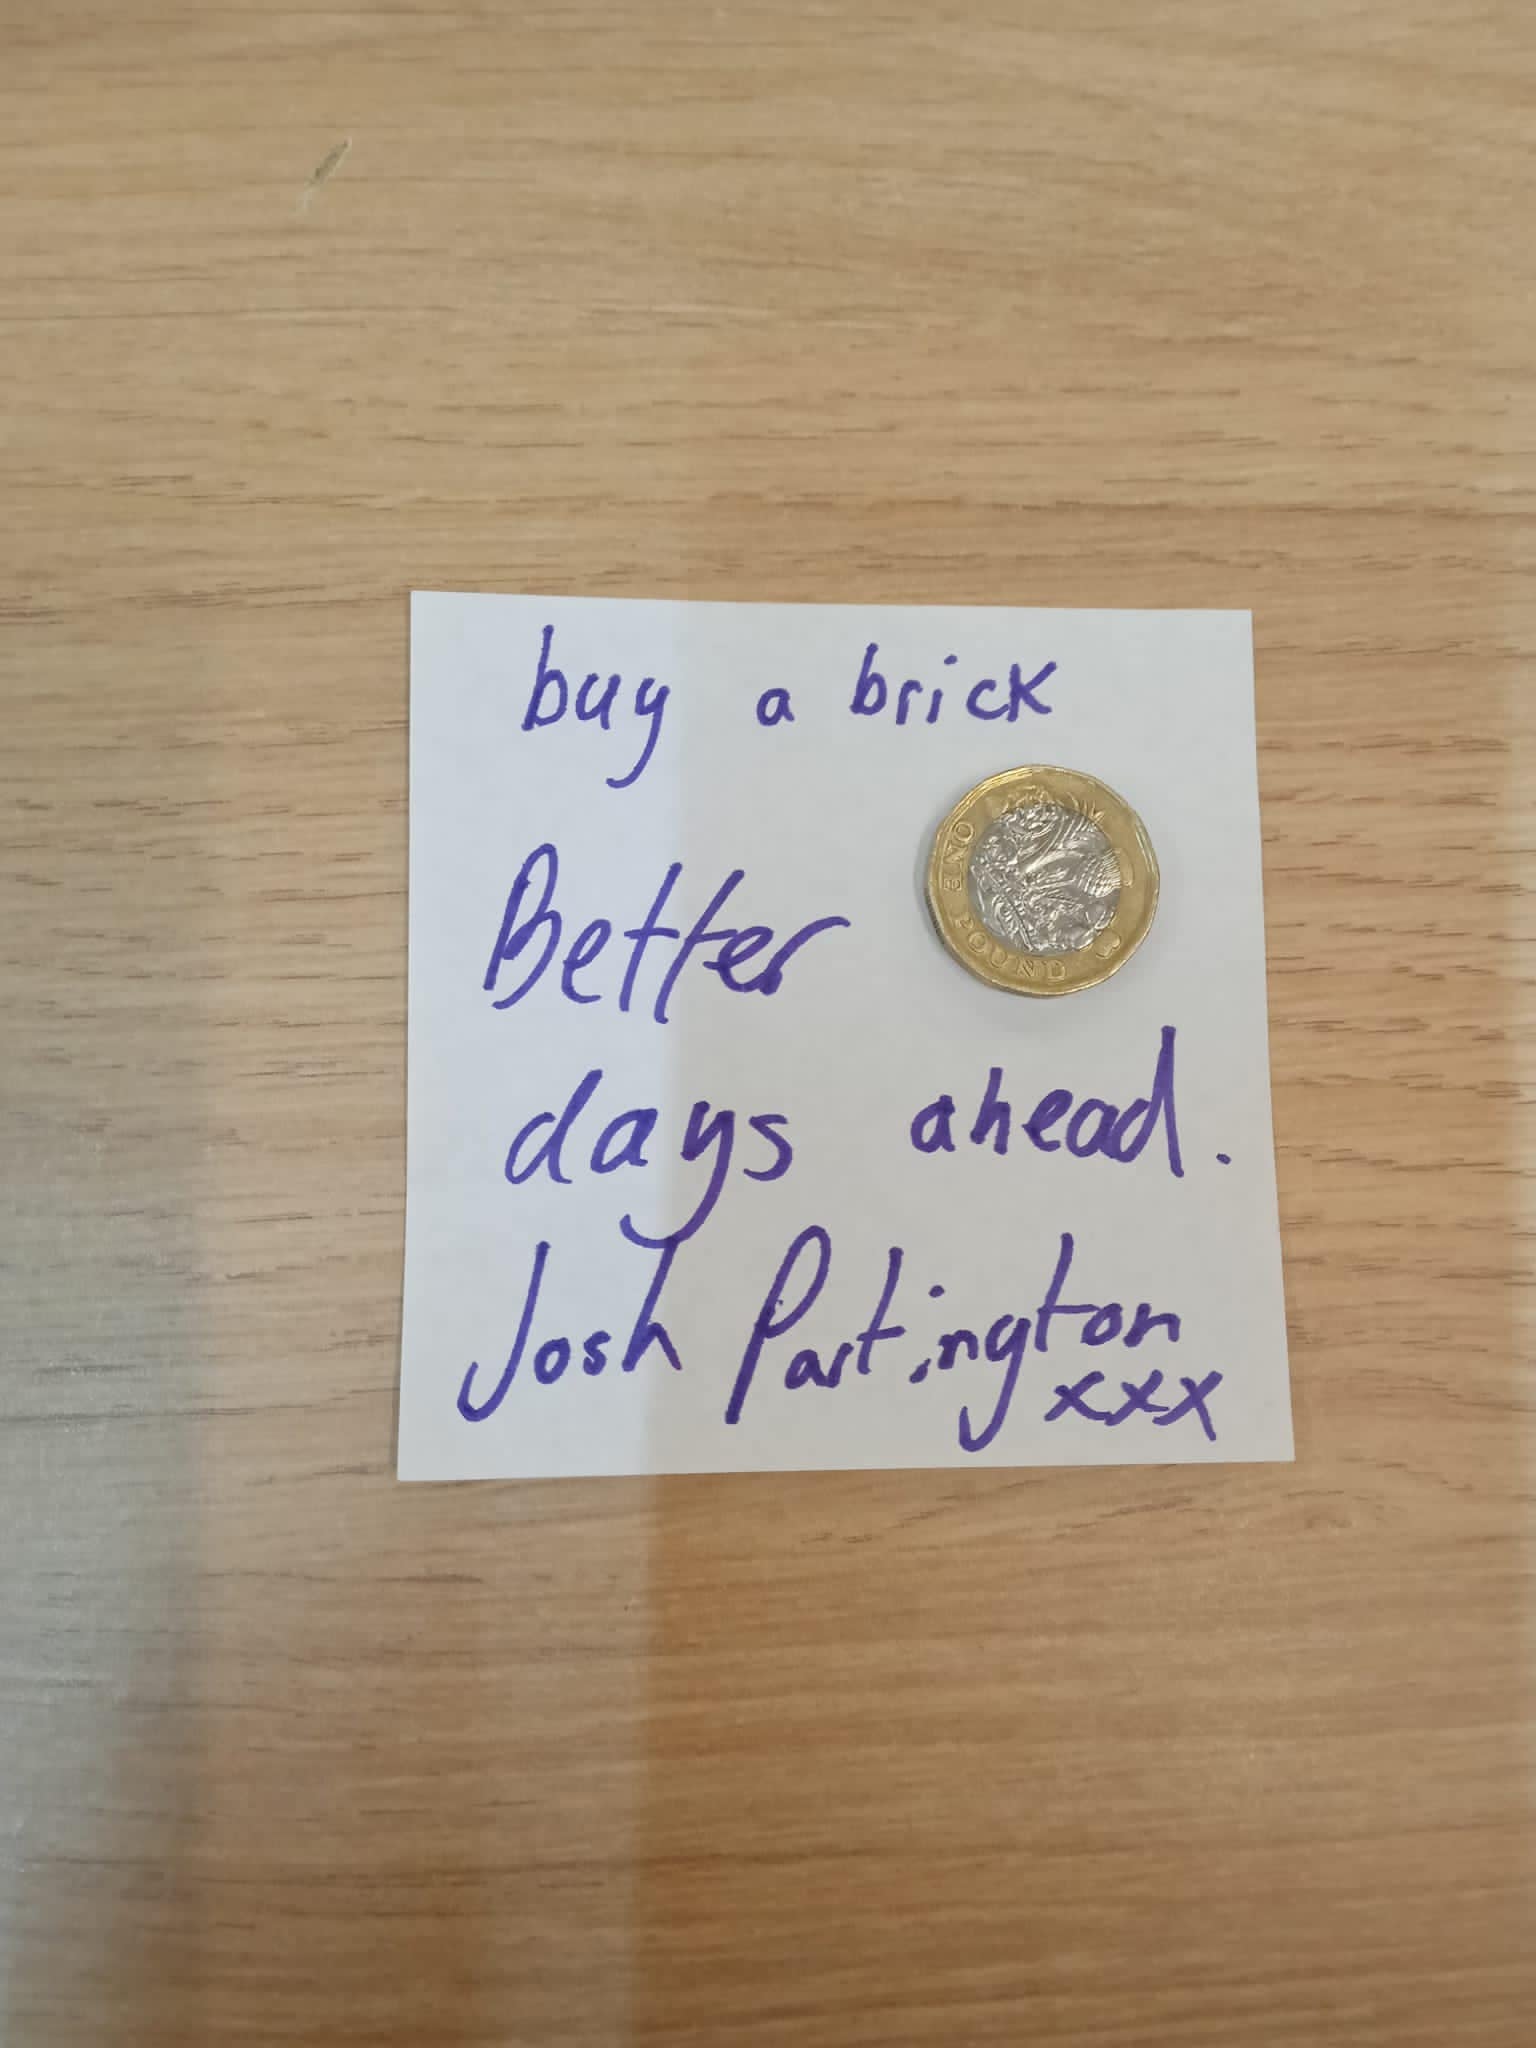 buy a brick
ONE POUND
Better
days ahead.
Josh Partington
xxx